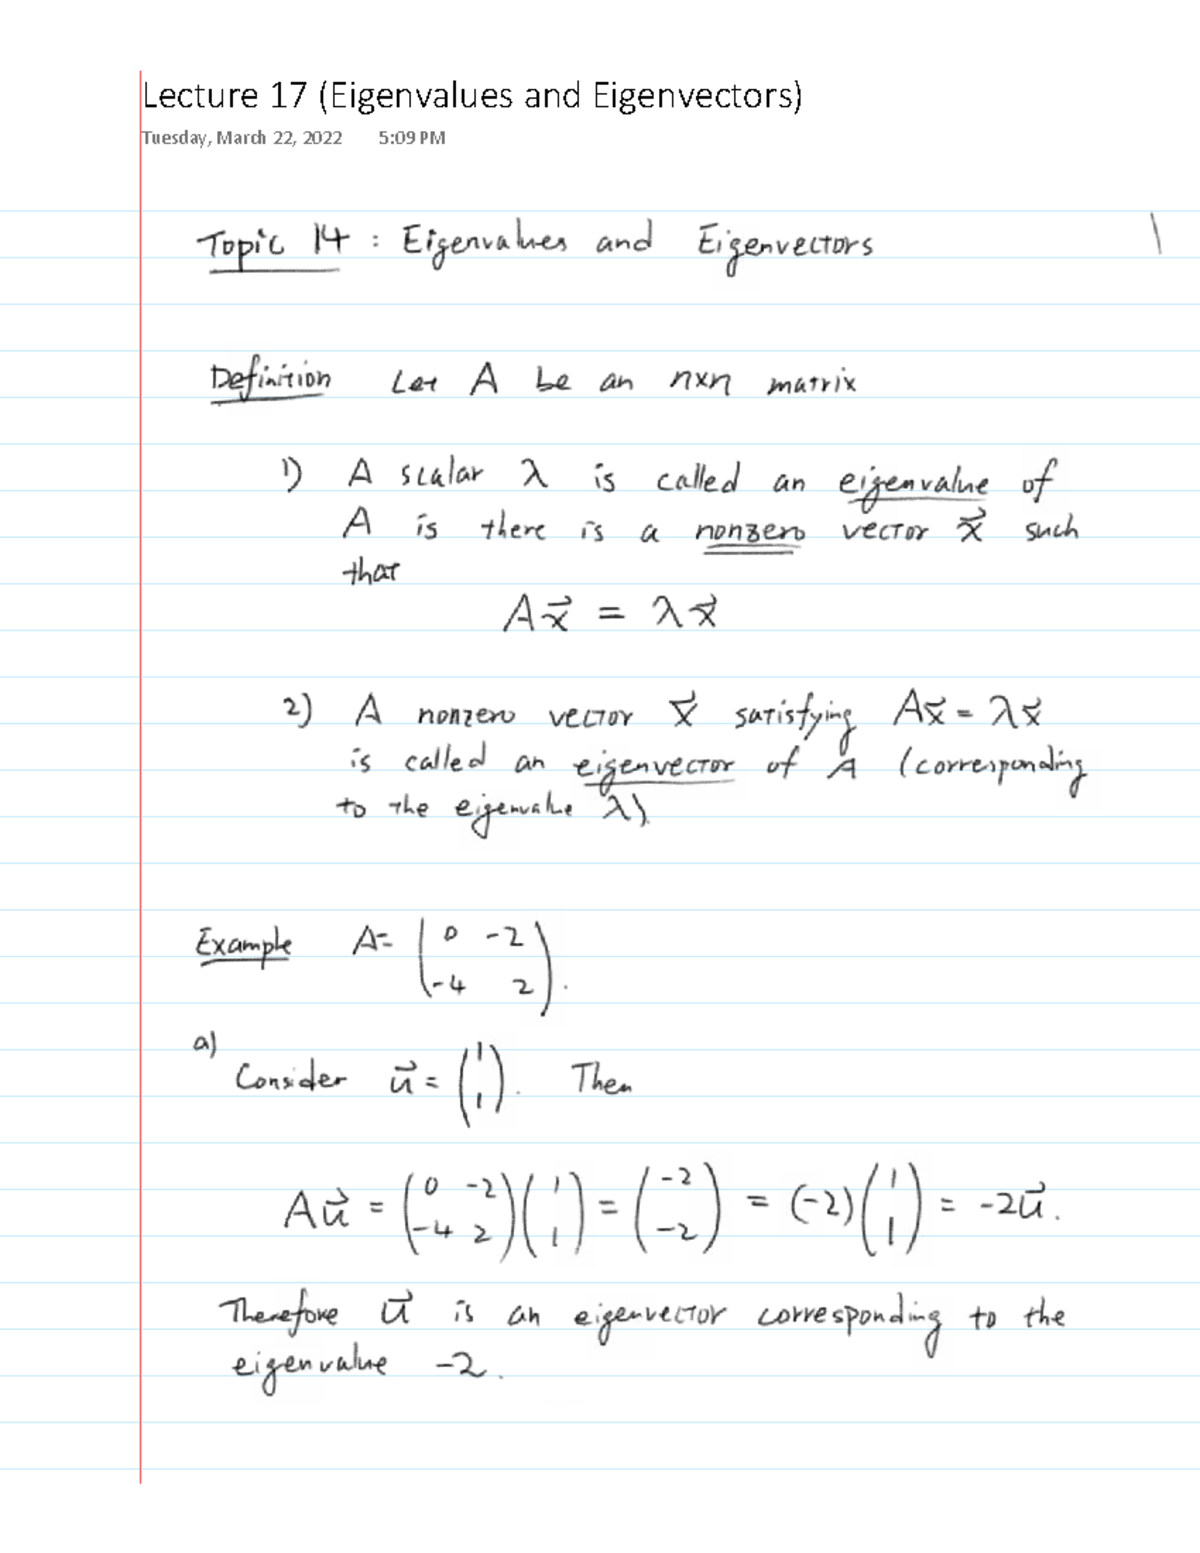 Lecture 17 (Eigenvalues and Eigenvectors)
Tuesday, March 22, 2022 5:09 PM
Topic 14 : Eigenvalues and Eigenvectors 1
Definition Let A be an n×n matrix
1) A scalar λ is called an eigenvalue of
A is there is a nonzero vector x⃗ such
that
Ax⃗ = λx⃗
2) A nonzero vector x⃗ satisfying Ax⃗ = λx⃗
is called an eigenvector of A (corresponding
to the eigenvalue λ)
Example A= (0 -2
-4 2).
a)
Consider u⃗ = (1
1). Then
Au⃗ = (0 -2
-4 2)(1
1) = (-2
-2) = (-2)(1
1) = -2u⃗.
Therefore u⃗ is an eigenvector corresponding to the
eigenvalue -2.